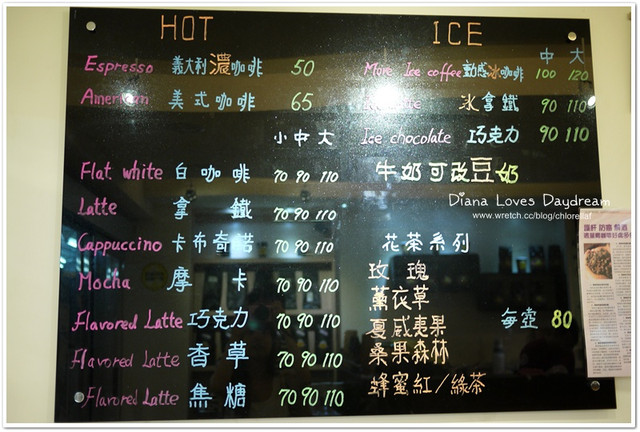 HOT
Espresso 義大利濃咖啡 50
American 美式咖啡 65
小 中 大
Flat white 白咖啡 70 90 110
Latte 拿鐵 70 90 110
Cappuccino 卡布奇諾 70 90 110
Mocha 摩卡 70 90 110
Flavored Latte 巧克力 70 90 110
Flavored Latte 香草 70 90 110
Flavored Latte 焦糖 70 90 110
ICE
中 大
More Ice coffee 動感冰咖啡 100 120
冰拿鐵 90 110
Ice chocolate 巧克力 90 110
牛奶可改豆奶
Diana Loves Daydream
www.wretch.cc/blog/chlorellaf
花茶系列
玫瑰
薰衣草
夏威夷果
桑果森林
蜂蜜紅/綠茶
每壺 80
護肝 防癌 解酒